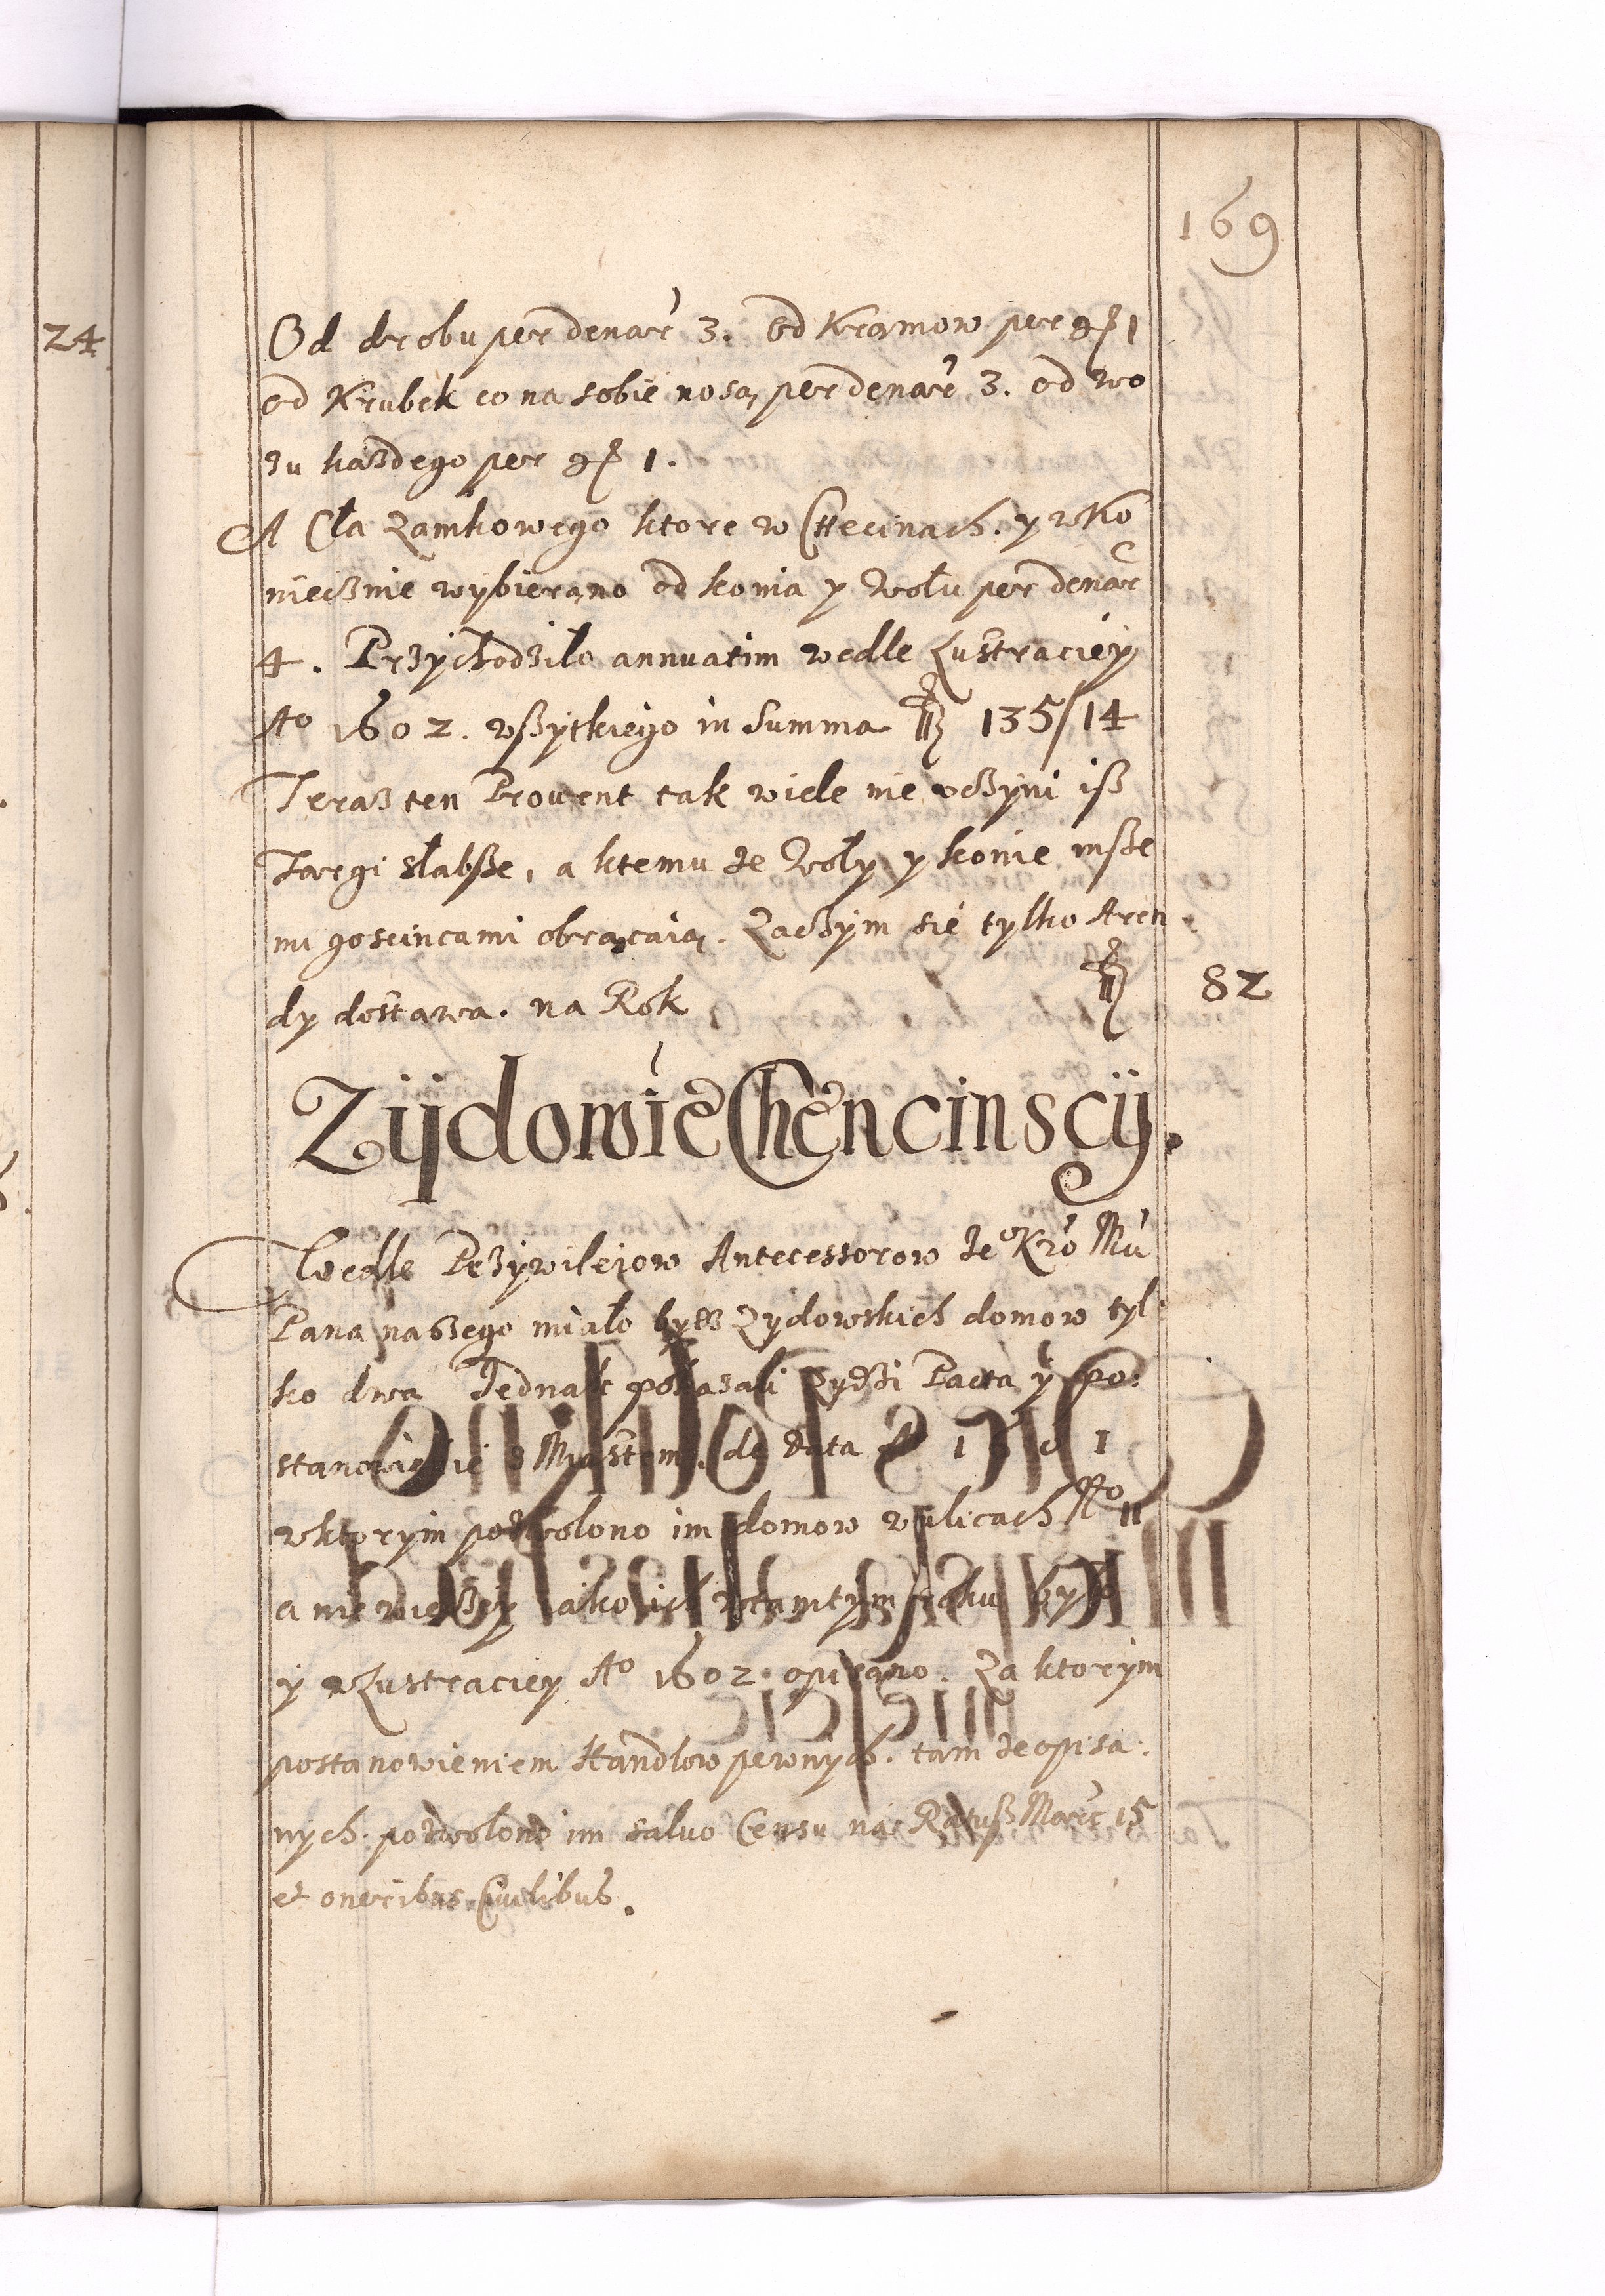 169
24
Od drobu per denar 3. od Kramow per gr 1
od Krubek co na sobie nosą per denar 3. od wo
zu każdego per gr 1.
A Cła Zamkowego ktore w Chęcinach. y w Ko
niecznie wybierano od konia y wołu per denar
4. Przychodziło annuatim wedle Lustraciey
Ao 1602. wszytkiego in Summa fl 135/14
Teraz ten Prouent tak wiele nie vczyni isz
Targi słabsze, a ktemu że woły y konie insze
mi goscincami obracaią. Zaczym sie tylko Aren
dy dostawa. na Rok fl 82
Zydowie Chencinscy.
Wedle Przywileiow Antecessorow Jeo Kro Mci
Pana naszego miało bydz Zydowskich domow tyl
ko dwa Jednak pokazali Zydzi Pacta y po:
stanowienie z Miastem. de data
w ktorym pozwolono im domow w ulicach No 11
a nie wieczey iako ich w tamtym roku było
y w Lustraciey Ao 1602. opisano. Za ktorym
postanowieniem Handlow pewnych. tam że opisa:
nych. pozwolono im saluo Censu na Ratusz Marc 15
et oneribus Ciuilibus.